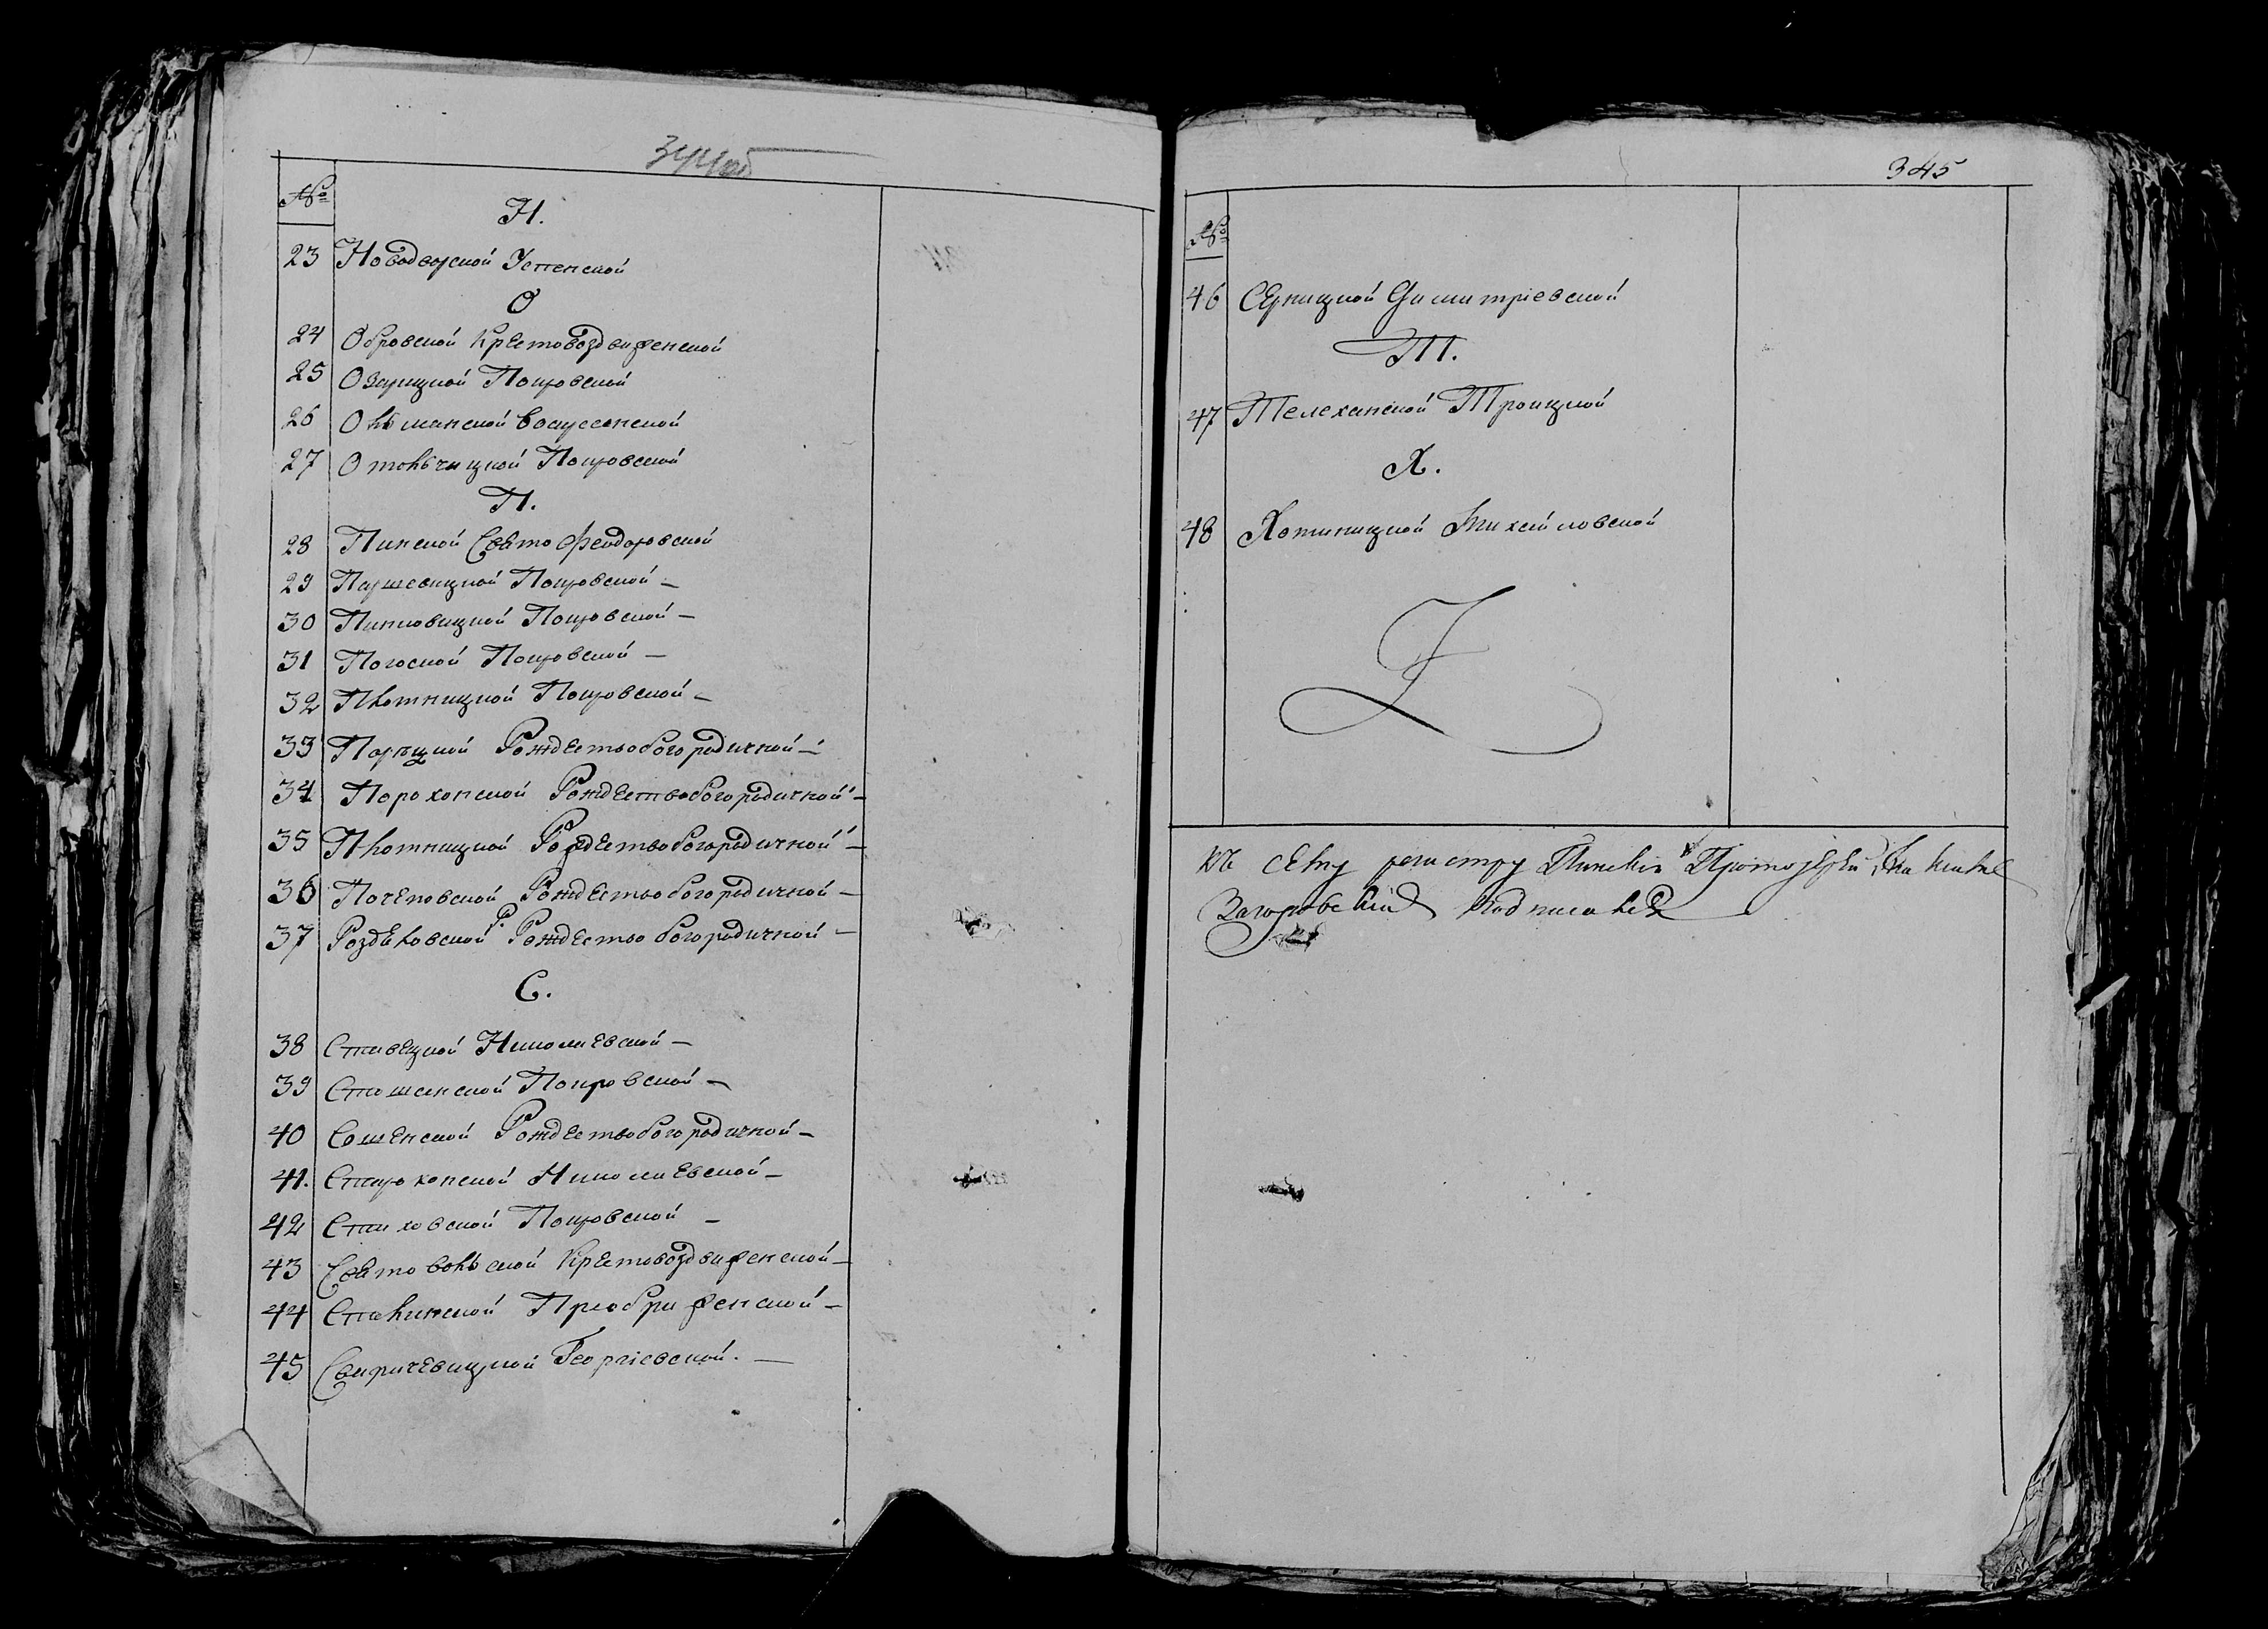 344об
№
Н.
23 Новодворской Успенской
О
24 Обровской Крестовоздвиженской
25 Озарицкой Покровской
26 Ольманской Воскресенской
27 Отольчицкой Покровской
П.
28 Пинской Святофеодоровской
29 Паршевицкой Покровской —
30 Пинковицкой Покровской —
31 Погоской Покровской —
32 Плотницкой Покровской —
33 Порѣцкой Рождествобогородичной —
34 Порохонской Рождествобогородичной —
35 Плотницкой Рождествобогородичной —
36 Почеповской Рождествобогородичной —
Р.
37 Роздѣловской Рождествобогородичной —
С.
38 Ставецкой Николаевской —
39 Сташанской Покровской —
40 Сошенской Рождествобогородичной —
41. Старохонской Николаевской —
42 Стаховской Покровской —
43 Святовольской Крестовоздвиженской —
44 Столинской Преображенской —
45 Свиричевицкой Георгіевской. —
345
№
46 Серницкой Димитріевской
Т.
47 Телеханской Троицкой
Х.
48 Хотиницкой Михайловской
къ сему регистру Пинскій Протоіерей
Загоровскій подписался